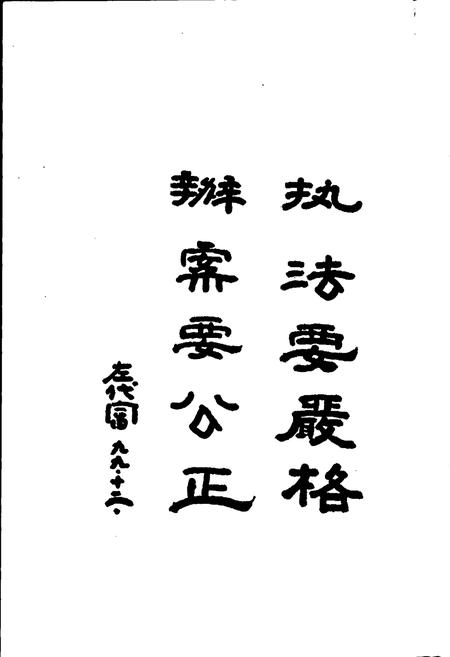 执法要嚴格
辦案要公正
左代富 九九.十二.